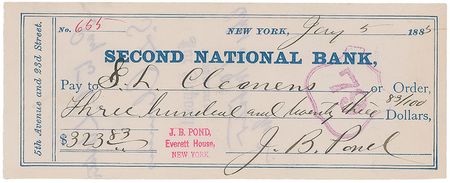 5th Avenue and 23d Street.
No. 655
NEW YORK, Jany 5 1885
SECOND NATIONAL BANK,
Pay to S. L. Clemens or Order,
Three hundred and twenty three 83/100 Dollars,
$323 83
J. B. POND,
Everett House,
NEW YORK.
J. B. Pond